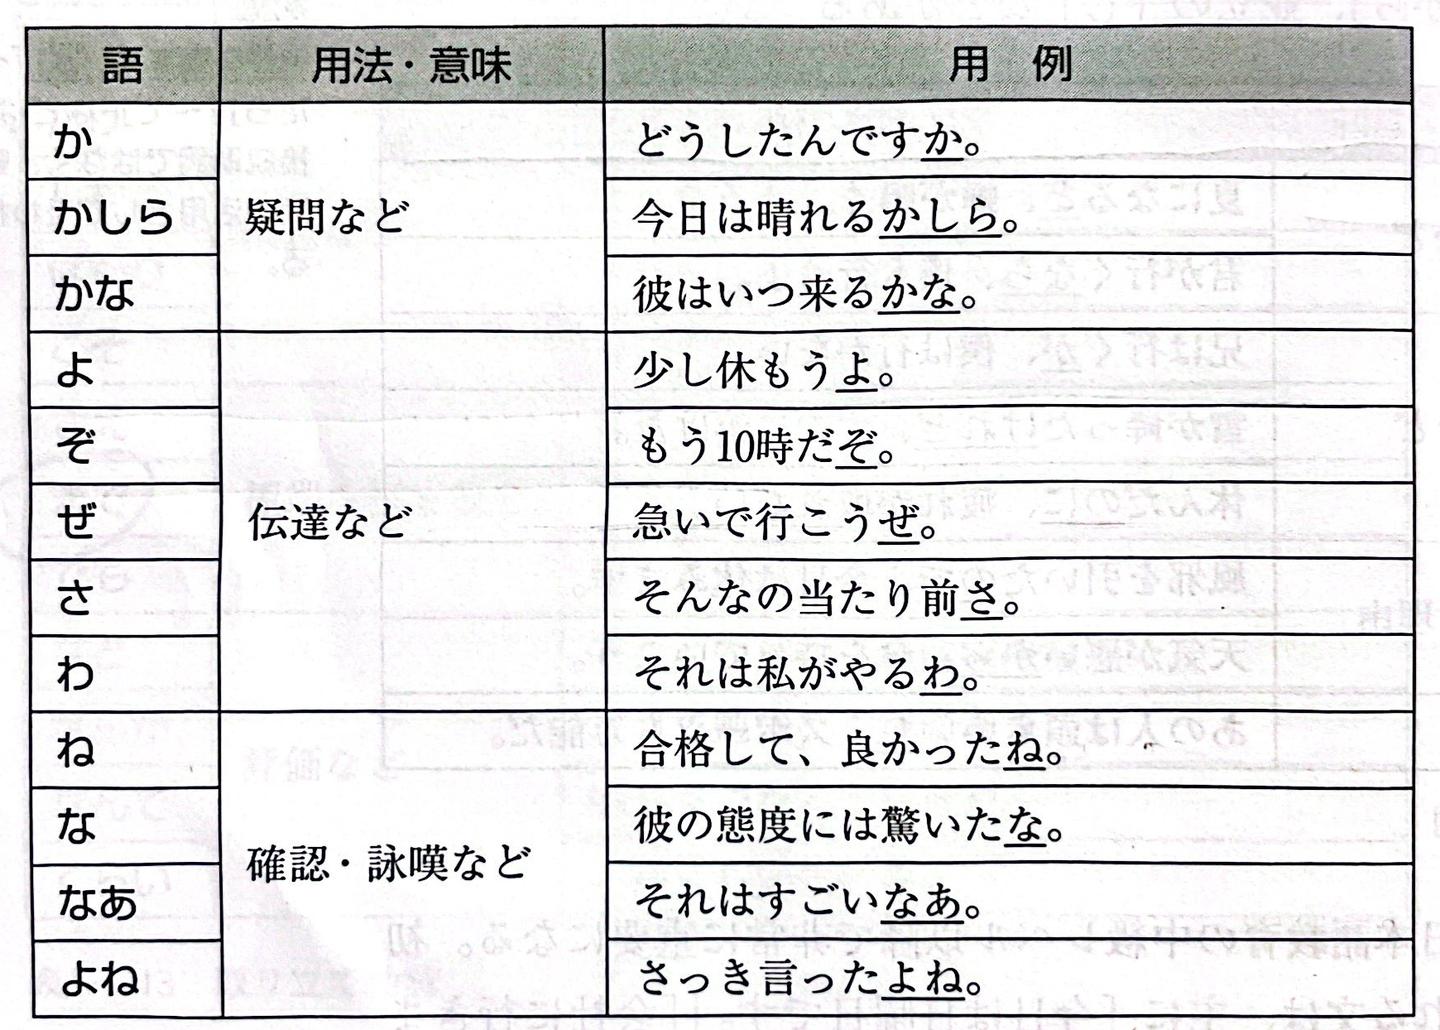 語 用法・意味 用 例
か どうしたんですか。
かしら 疑問など 今日は晴れるかしら。
かな 彼はいつ来るかな。
よ 少し休もうよ。
ぞ もう10時だぞ。
ぜ 伝達など 急いで行こうぜ。
さ そんなの当たり前さ。
わ それは私がやるわ。
ね 合格して、良かったね。
な 彼の態度には驚いたな。
確認・詠嘆など
なあ それはすごいなあ。
よね さっき言ったよね。